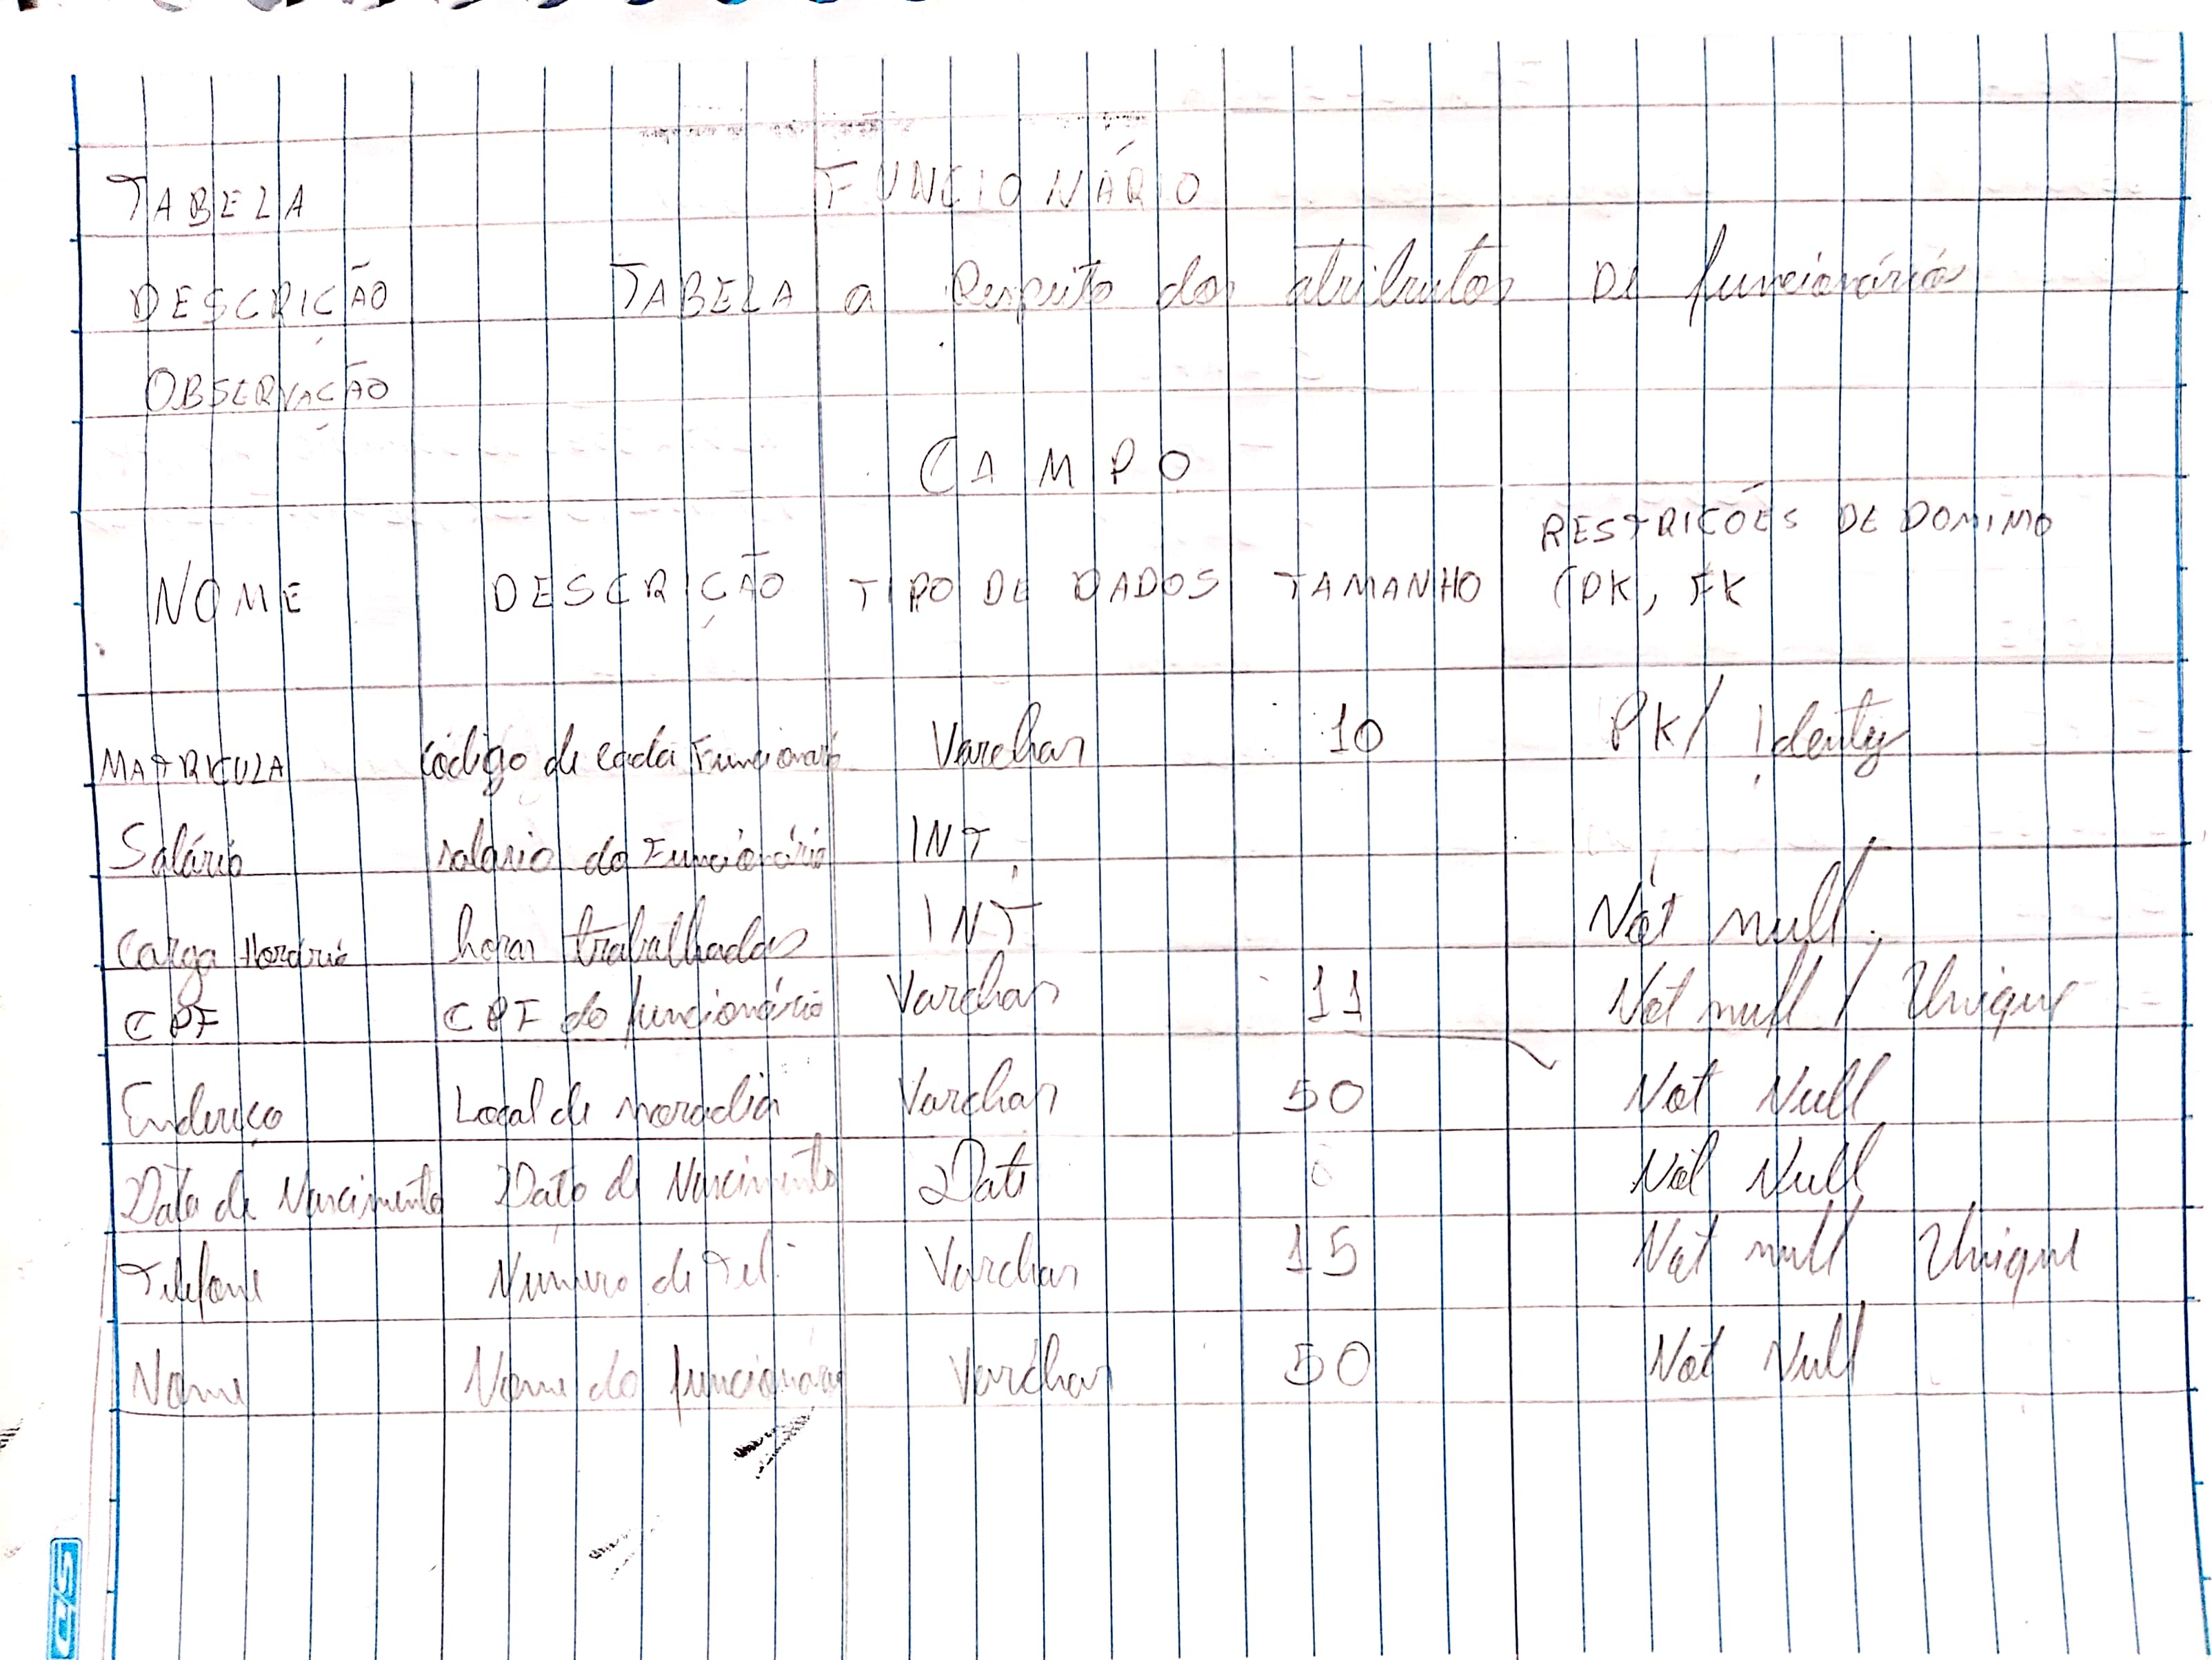 TABELA FUNCIONÁRIO
DESCRIÇÃO TABELA a Respeito dos atributos De funcionários
OBSERVAÇÃO
CAMPO
NOME DESCRIÇÃO TIPO DE DADOS TAMANHO RESTRIÇÕES DE DOMINIO (PK, FK
MATRICULA código de cada Funcionario Varchar 10 PK/ Identy
Salário salario do Funcionário INT
Carga Horária horas trabalhadas INT Not null
CPF CPF do funcionário Varchar 11 Not null / Unique
Endereço Local de moradia Varchar 50 Not Null
Data de Nascimento Data de Nascimento Date Not Null
Telefone Número de Tel. Varchar 15 Not null Unique
Nome Nome do funcionário Varchar 50 Not Null